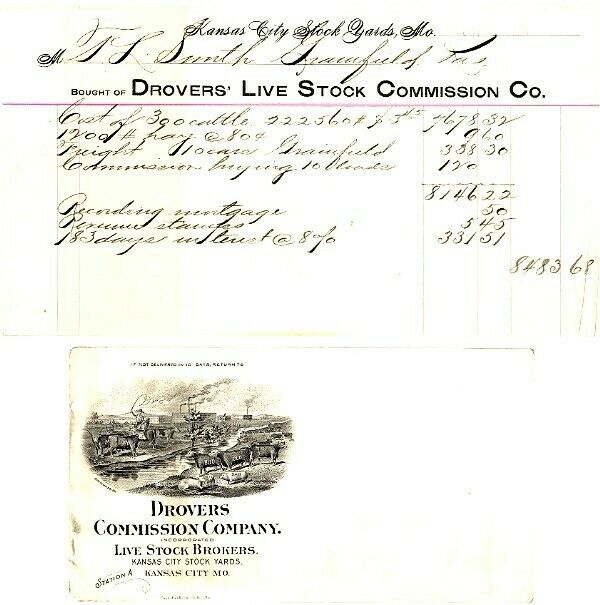 Kansas City Stock Yards, Mo.
M F. K. Smith Grainfield Kas
BOUGHT OF DROVERS' LIVE STOCK COMMISSION CO.
Cost of 300 cattle 222560 # $ 3 45 7678 32
1200 # hay @ 80¢ 9 60
Freight 10 cars Grainfield 338 30
Commission buying 10 loads 120
8146 22
Recording mortgage 50
Revenue stamps 5 45
183 days interest @ 8% 331 51
8483 68
IF NOT DELIVERED IN 10 DAYS, RETURN TO
DROVERS
COMMISSION COMPANY.
INCORPORATED
LIVE STOCK BROKERS.
KANSAS CITY STOCK YARDS,
STATION A KANSAS CITY MO.